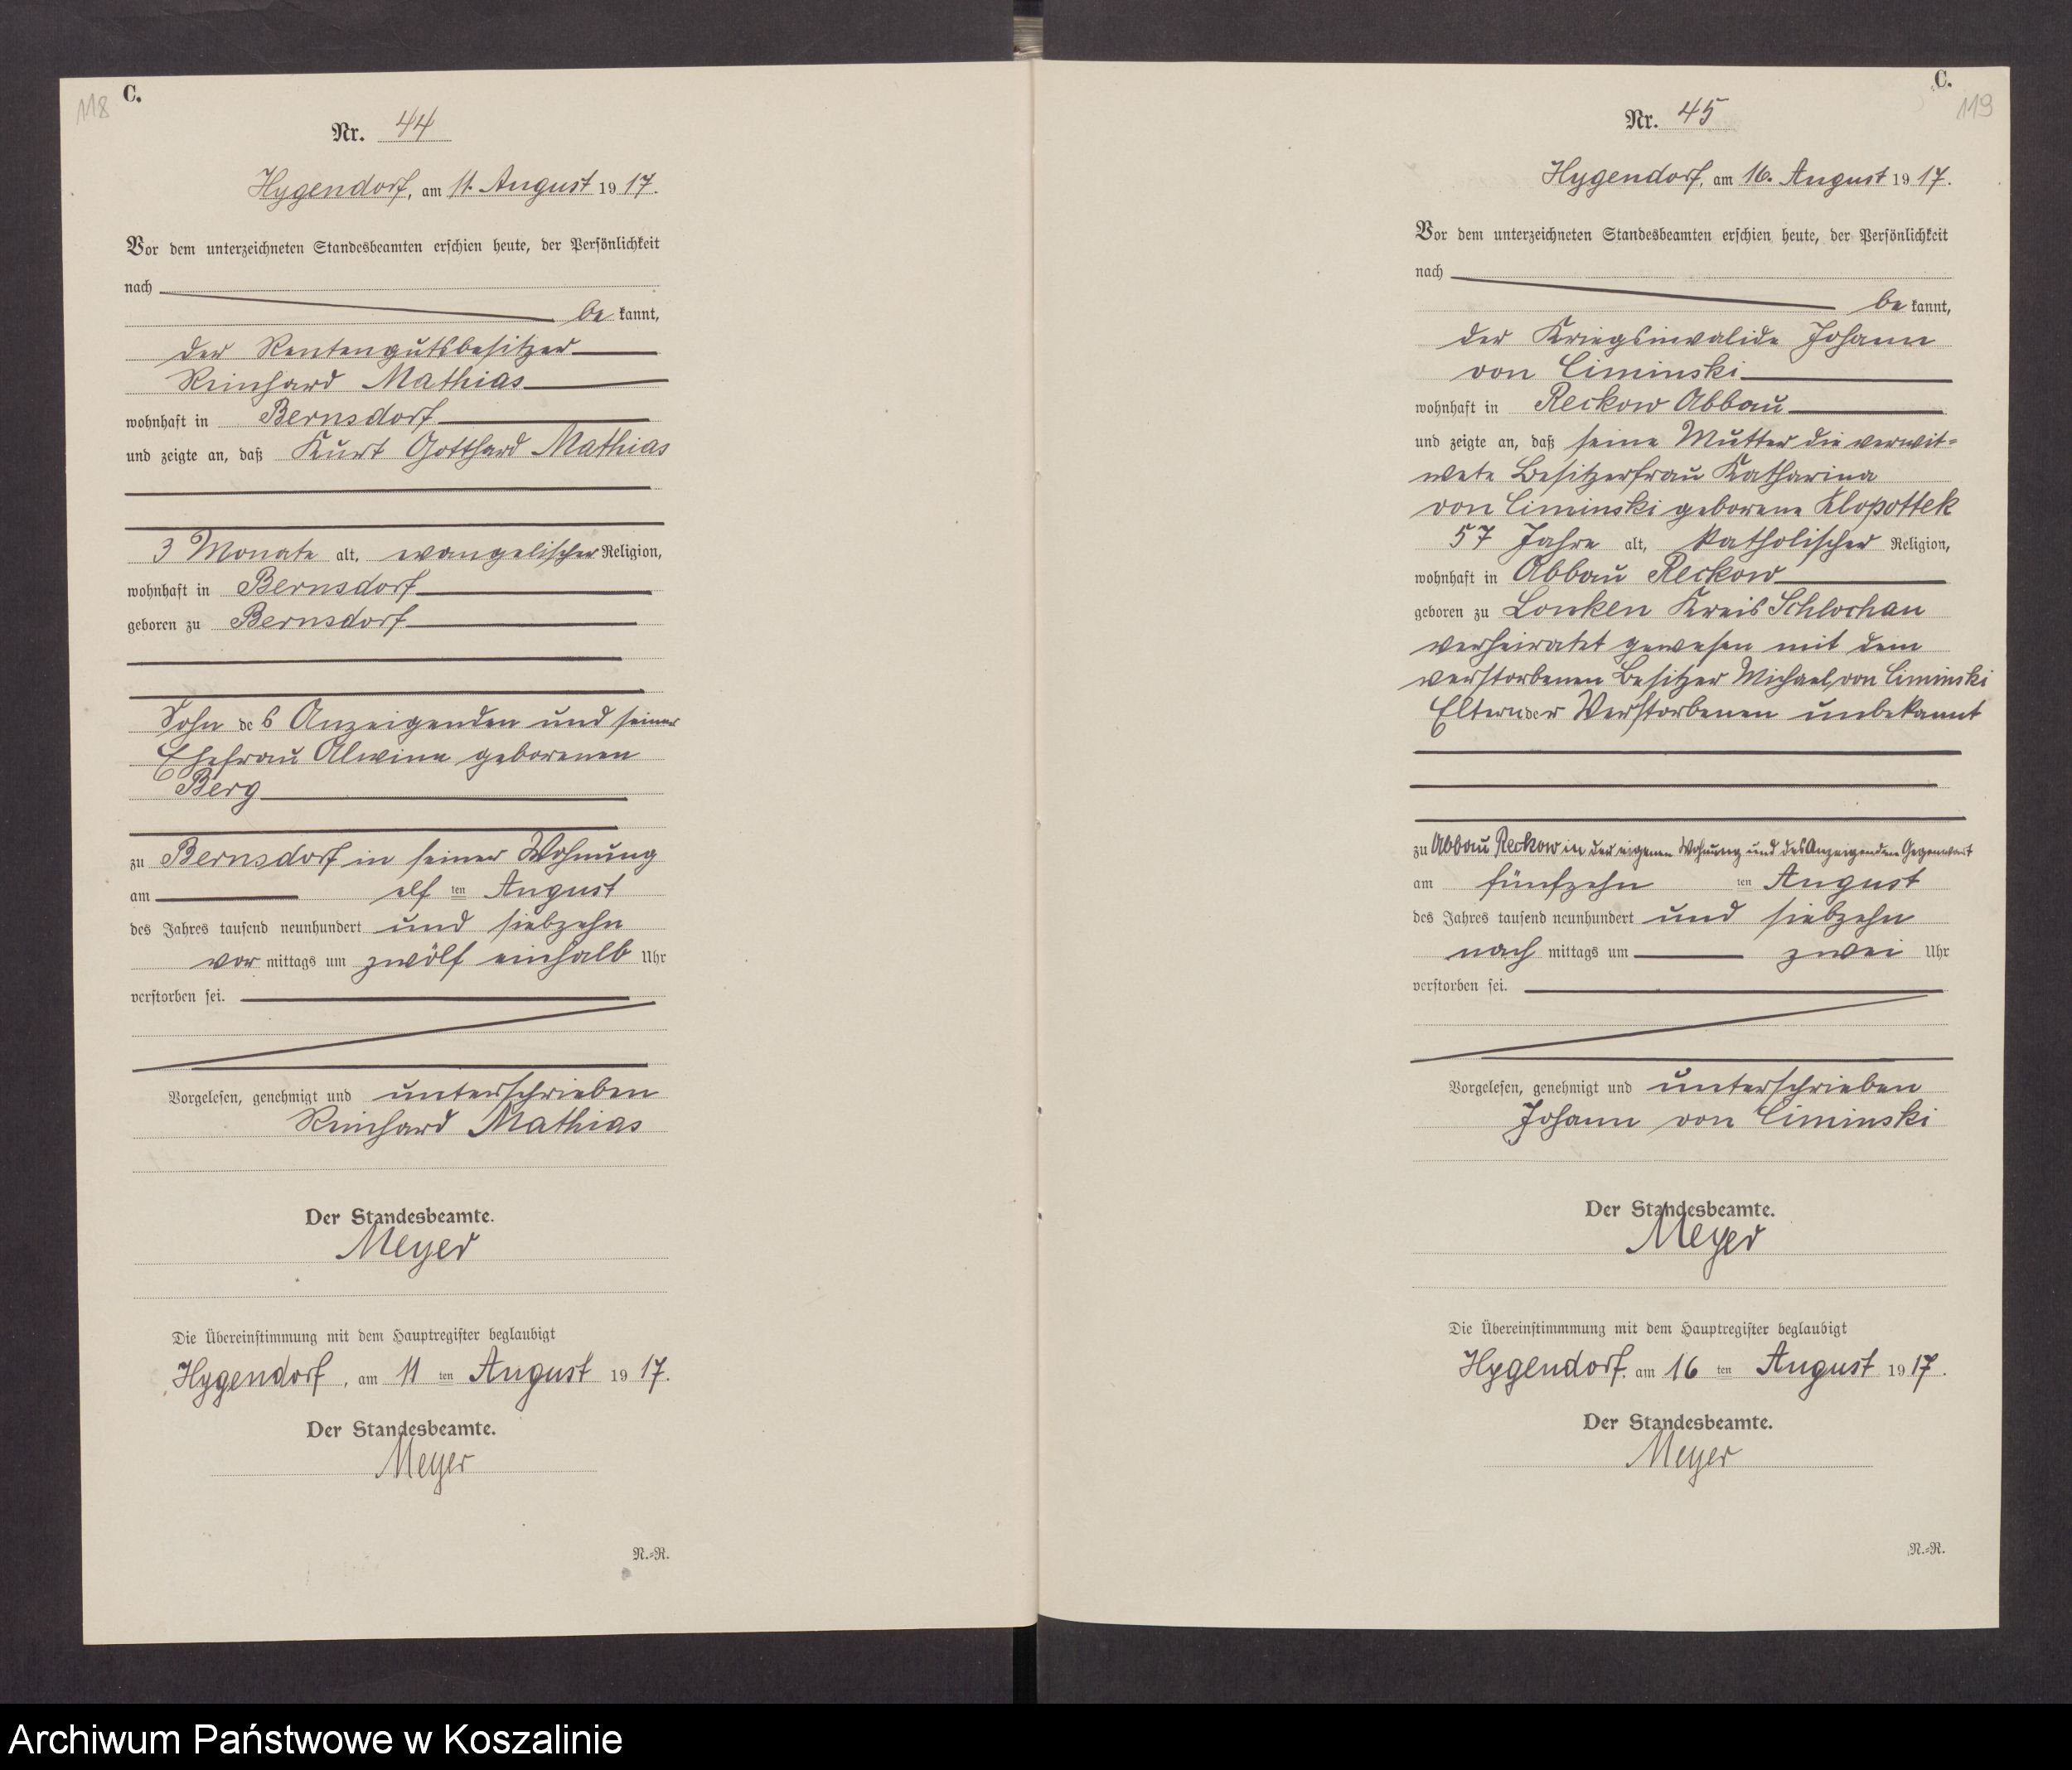 118
C.
Nr. 44
Hygendorf, am 11. August 1917.
Vor dem unterzeichneten Standesbeamten erschien heute, der Persönlichkeit
nach
be kannt,
der Rentengutsbesitzer
Reinhard Mathias
wohnhaft in Bernsdorf
und zeigte an, daß Kurt Gotthard Mathias
3 Monate alt, evangelischer Religion,
wohnhaft in Bernsdorf
geboren zu Bernsdorf
Sohn des Anzeigenden und seiner
Ehefrau Alwine geborenen
Berg
zu Bernsdorf in seiner Wohnung
am elf ten August
des Jahres tausend neunhundert und siebzehn
vor mittags um zwölf einhalb Uhr
verstorben sei.
Vorgelesen, genehmigt und unterschrieben
Reinhard Mathias
Der Standesbeamte.
Meyer
Die Übereinstimmung mit dem Hauptregister beglaubigt
Hygendorf, am 11 ten August 1917.
Der Standesbeamte.
Meyer
N.=R.
C.
119
Nr. 45
Hygendorf, am 16. August 1917.
Vor dem unterzeichneten Standesbeamten erschien heute, der Persönlichkeit
nach
be kannt,
der Kriegsinvalide Johann
von Ciminski
wohnhaft in Reckow Abbau
und zeigte an, daß seine Mutter die verwit=
wete Besitzerfrau Katharina
von Ciminski geborene Klopottek
57 Jahre alt, katholischer Religion,
wohnhaft in Abbau Reckow
geboren zu Lonken Kreis Schlochau
verheiratet gewesen mit dem
verstorbenen Besitzer Michael von Ciminski
Eltern der Verstorbenen unbekannt
zu Abbau Reckow in der eigenen Wohnung und des Anzeigenden Gegenwart
am fünfzehn ten August
des Jahres tausend neunhundert und siebzehn
nach mittags um zwei Uhr
verstorben sei.
Vorgelesen, genehmigt und unterschrieben
Johann von Ciminski
Der Standesbeamte.
Meyer
Die Übereinstimmmung mit dem Hauptregister beglaubigt
Hygendorf. am 16 ten August 1917.
Der Standesbeamte.
Meyer
N.=R.
Archiwum Państwowe w Koszalinie